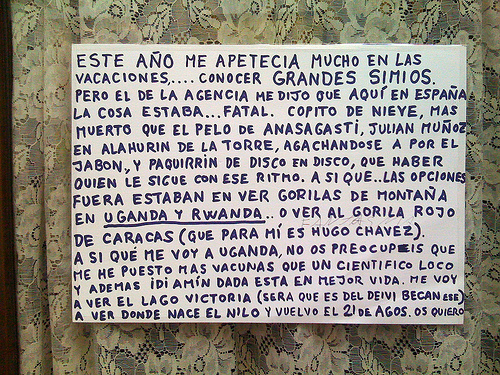 ESTE AÑO ME APETECIA MUCHO EN LAS
VACACIONES,.... CONOCER GRANDES SIMIOS.
PERO EL DE LA AGENCIA ME DIJO QUE AQUÍ EN ESPAÑA
LA COSA ESTABA...FATAL. COPITO DE NIEVE, MAS
MUERTO QUE EL PELO DE ANASAGASTI, JULIAN MUÑOZ
EN ALAHURIN DE LA TORRE, AGACHANDOSE A POR EL
JABON, Y PAQUIRRIN DE DISCO EN DISCO, QUE HABER
QUIEN LE SIGUE CON ESE RITMO. A SI QUE..LAS OPCIONES
FUERA ESTABAN EN VER GORILAS DE MONTAÑA
EN UGANDA Y RWANDA.. O VER AL GORILA ROJO
DE CARACAS (QUE PARA MÍ ES HUGO CHAVEZ).
A SI QUE ME VOY A UGANDA, NO OS PREOCUPEIS QUE
ME HE PUESTO MAS VACUNAS QUE UN CIENTIFICO LOCO
Y ADEMAS IDI AMÍN DADA ESTA EN MEJOR VIDA. ME VOY
A VER EL LAGO VICTORIA (SERA QUE ES DEL DEIVI BECAN ESE)
A VER DONDE NACE EL NILO Y VUELVO EL 21 DE AGOS. OS QUIERO